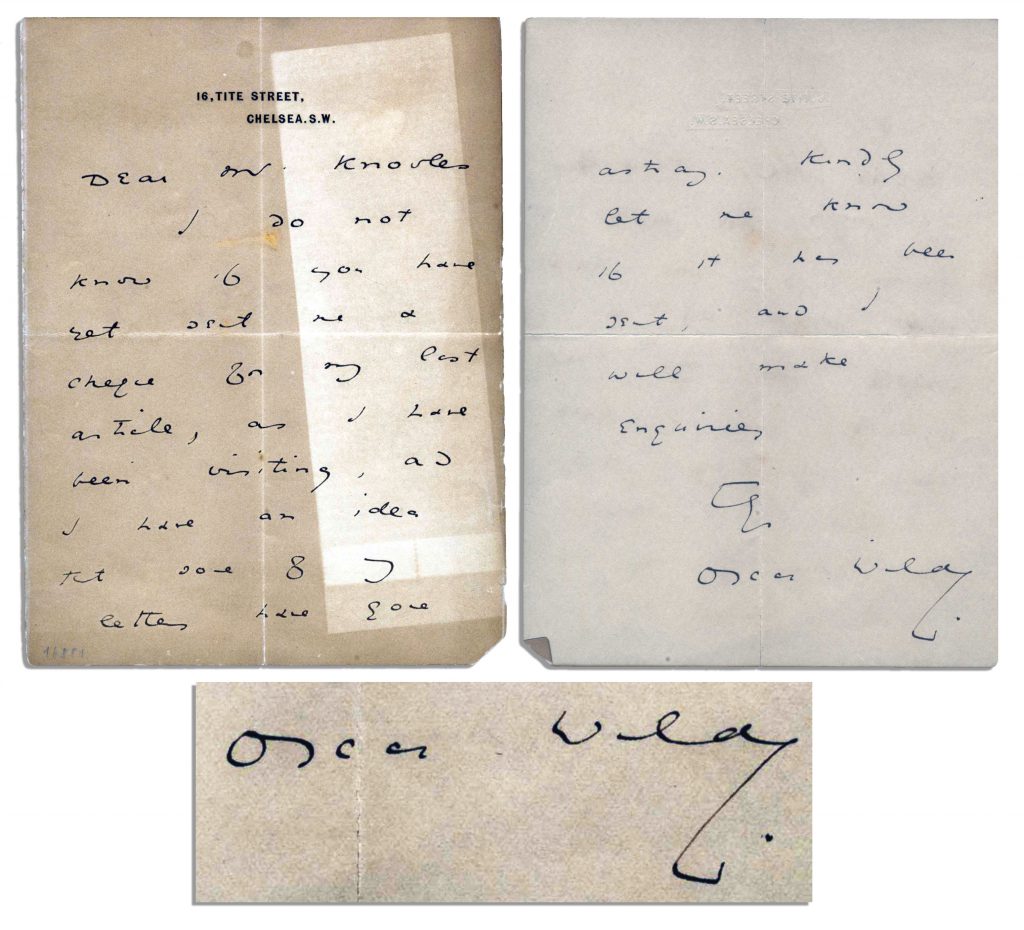 16, TITE STREET,
CHELSEA. S.W.
Dear Mr. Knowles
I do not
know if you have
yet sent me a
cheque for my last
article, as I have
been visiting, and
I have an idea
that some of my
letters have gone
16881
astray. Kindly
let me know
if it has been
sent, and I
will make
enquiries
Oscar Wilde
Oscar Wilde